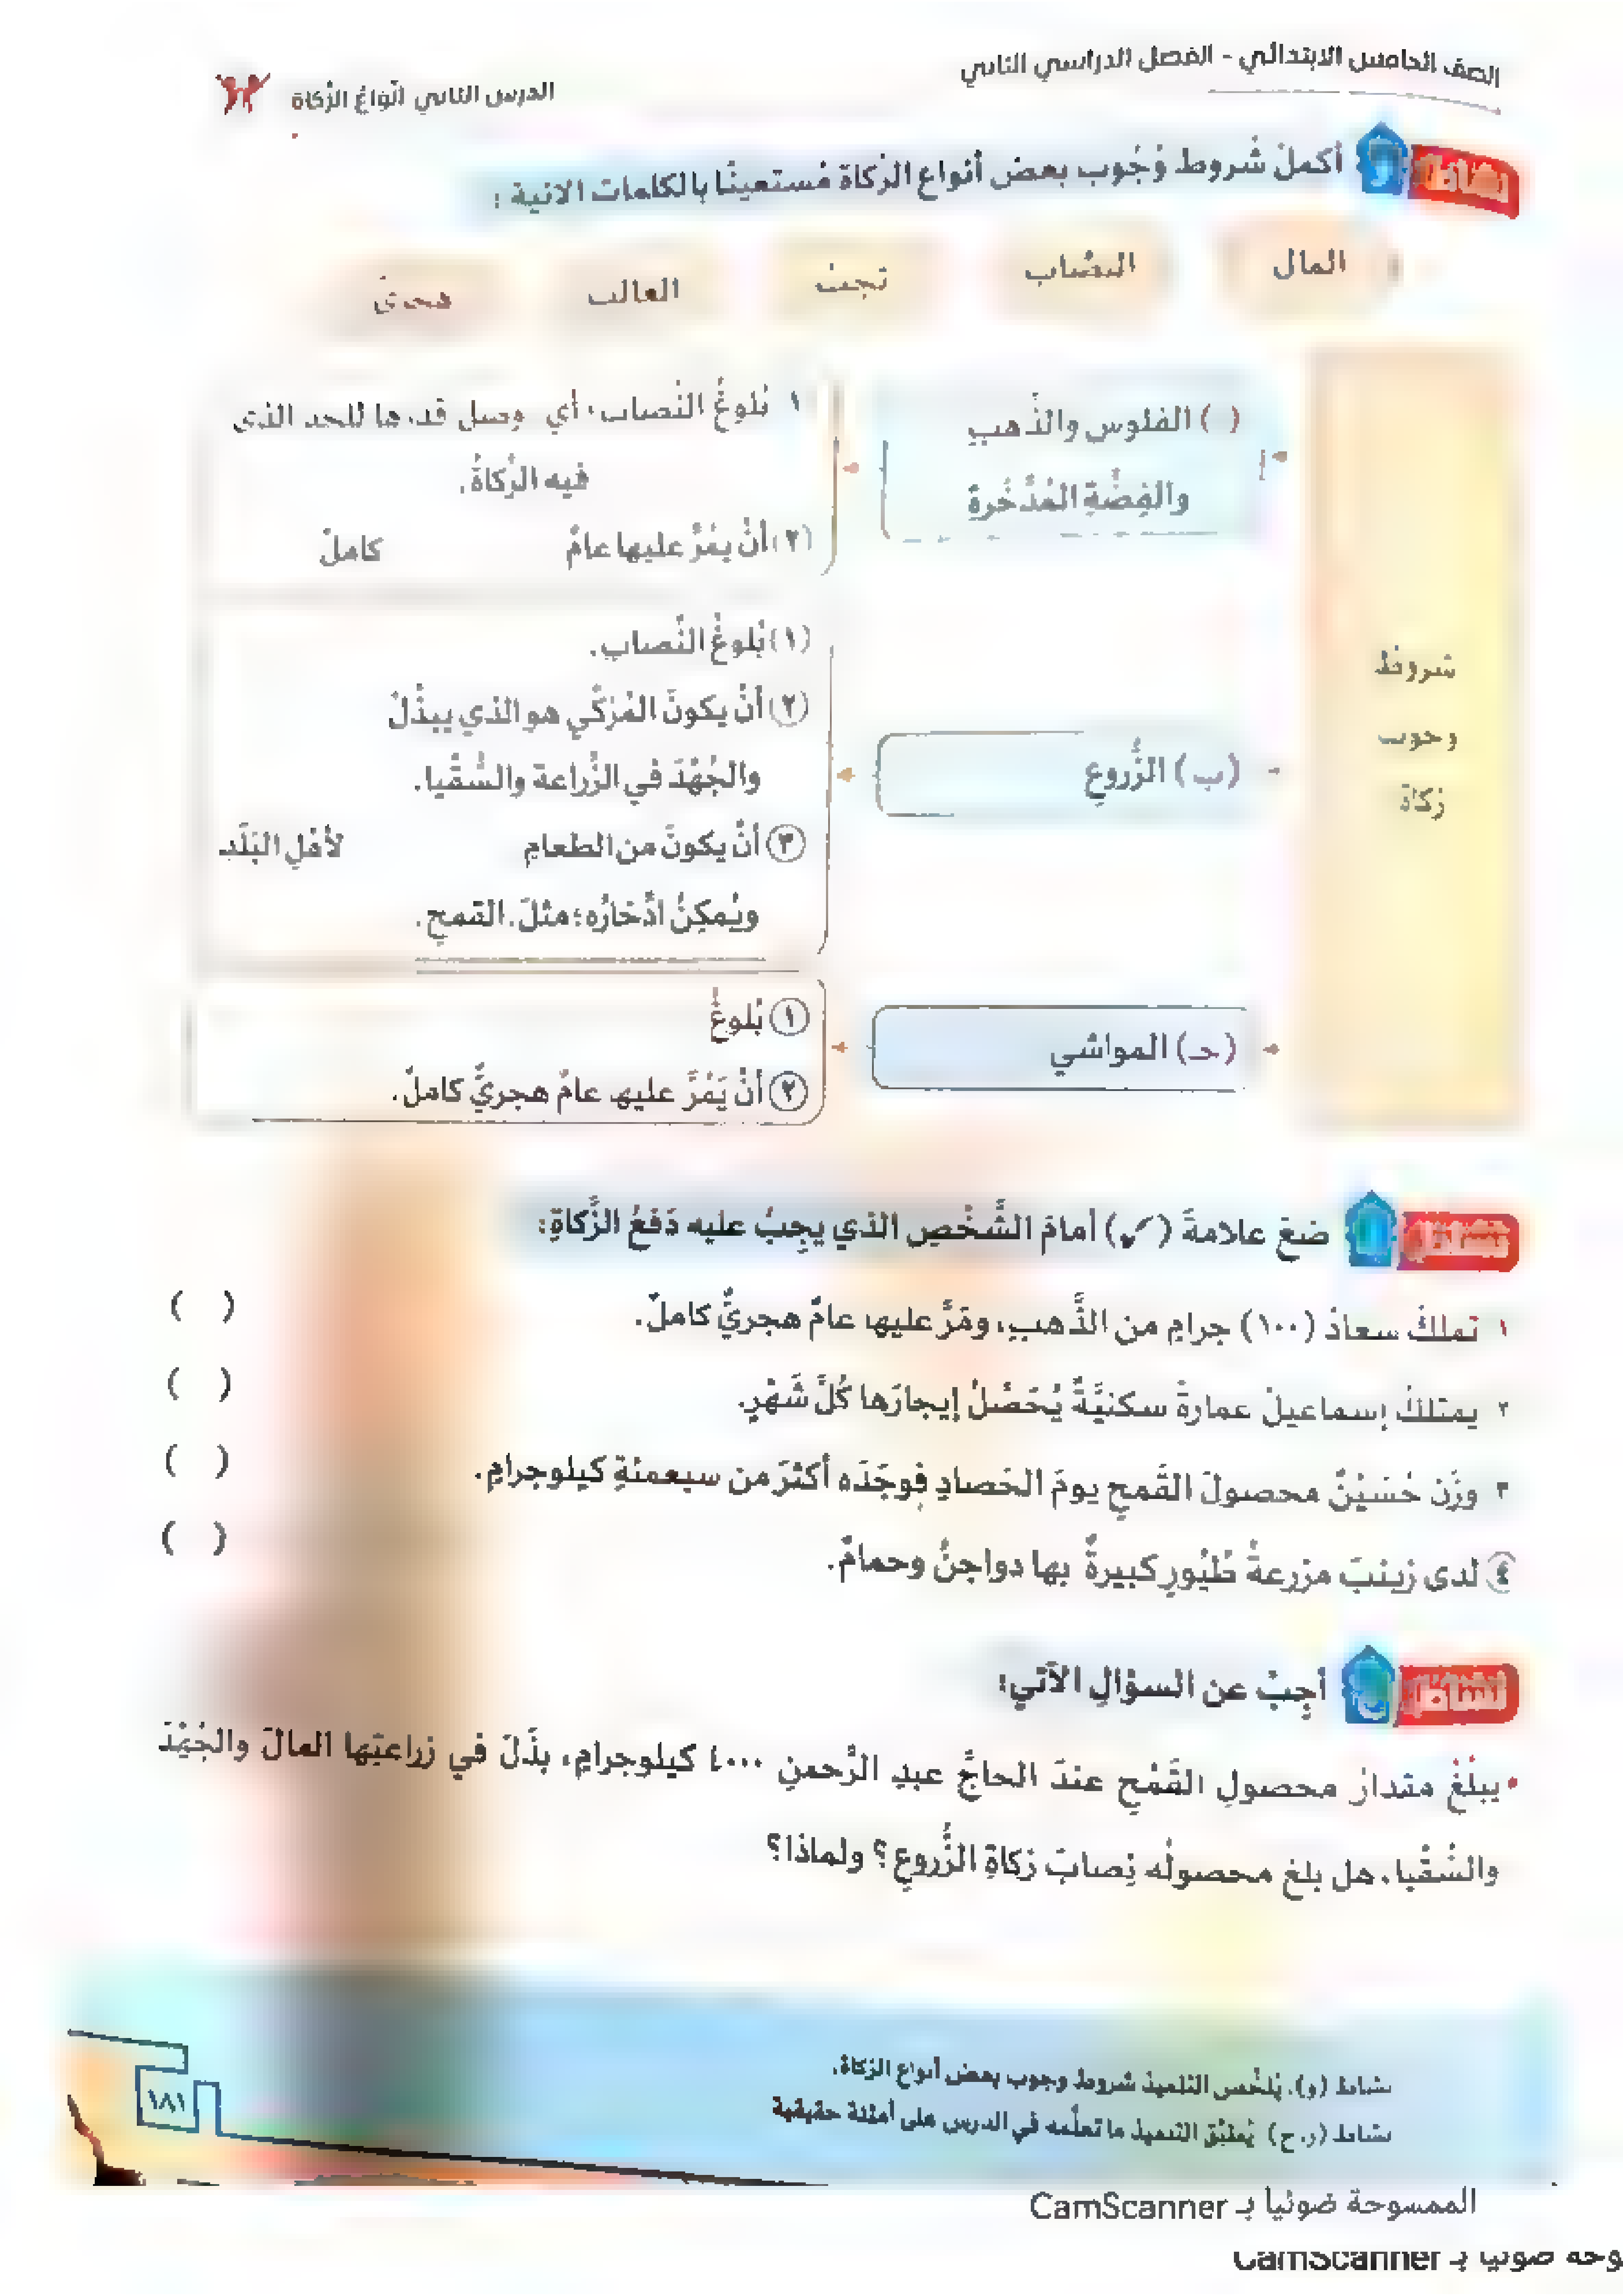 الصف الخامس الابتدائي - الفصل الدراسي الثاني
الدرس الثاني أنواعُ الزَّكاة
نشاط و أكملْ شُروط وُجُوب بعض أنواع الزَّكاة مُستعينًا بالكلمات الاتية :
المال النصاب تجب الغالب هجري
شروط وجوب زكاة
( ) الفلوس والذَّهبِ
والفِضَّةِ المُدَّخَرةِ
١ بُلوغُ النِّصاب، أي وصل قدرها للحد الذي
فيه الزَّكاةُ.
(٢) أنْ يمُرَّ عليها عامٌ كاملٌ
(ب) الزُّروعِ
(١) بُلوغُ النِّصابِ.
(٢) أنْ يكونَ المُزكِّي هو الذي يبذُلُ
والجُهْدَ في الزِّراعة والسُّقْيا.
(٣) أنْ يكونَ من الطعامِ لأهْلِ البَلَدِ
ويُمكِنُ ادِّخارُه؛ مثلَ. القمحِ.
(حـ) المواشي
(١) بُلوغُ
(٢) أنْ يَمُرَّ عليها عامٌ هجريٌّ كاملٌ.
نشاط ضعْ علامةَ (✓) أمامَ الشَّخْصِ الذي يجِبُ عليه دَفعُ الزَّكاةِ:
١ تملكُ سعادُ (١٠٠) جرامٍ من الذَّهبِ، ومَرَّ عليها عامٌ هجريٌّ كاملٌ. ( )
٢ يمتلكُ إسماعيلُ عمارةً سكنيَّةً يُحَصِّلُ إيجارَها كُلَّ شَهْرٍ. ( )
٣ وزَن حُسَيْنٌ محصولَ القَمحِ يومَ الحَصادِ فوجَدَه أكثرَ من سبعمئةِ كيلوجرامٍ. ( )
(٤) لدى زينبَ مزرعةُ طُيُورٍ كبيرةٌ بها دواجنُ وحمامٌ. ( )
نشاط أجِبْ عن السؤالِ الآتي:
• يبلُغُ مقدارُ محصولِ القَمْحِ عندَ الحاجِّ عبدِ الرَّحمنِ ٤٠٠٠ كيلوجرامٍ، بذَلَ في زراعتِها المالَ والجُهْدَ
والسُّقْيا، هل بلغ محصولُه نِصابَ زكاةِ الزُّروعِ؟ ولماذا؟
نشاط (و). يُلخِّص التلميذ شروط وجوب بعض أنواع الزكاة.
نشاط (ز، ح) يُطبِّق التلميذ ما تعلَّمه في الدرس على أمثلة حقيقية
١٨١
الممسوحة ضوئيا بـ CamScanner
وحة ضوئيا بـ CamScanner